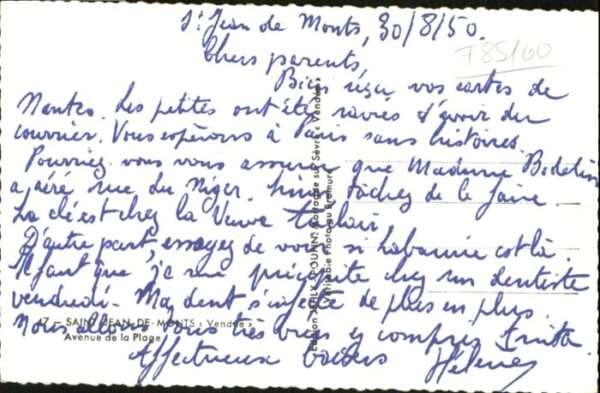 St Jean de Monts, 30/8/50.
F85/60
Chers parents,
Bien reçu vos cartes de
Nantes. Les petites ont été ravies d'avoir du
courrier. Vous espérons à Paris sans histoires.
Pourriez vous vous assurer que Madame
a aéré rue du Niger. Sinon tâchez de le faire.
La clé est chez la Veuve
D'autre part, essayez de voir si est là.
Il faut que je me précipite chez un dentiste
vendredi. Ma dent s'infecte de plus en plus.
Nous allons tous très bien y compris
Affectueux baisers Hélène
47 - SAINT-JEAN-DE-MONTS « Vendée »
Avenue de la Plage
Mortagne sur Sèvre « Vendée »
Véritable Photo au Bromure